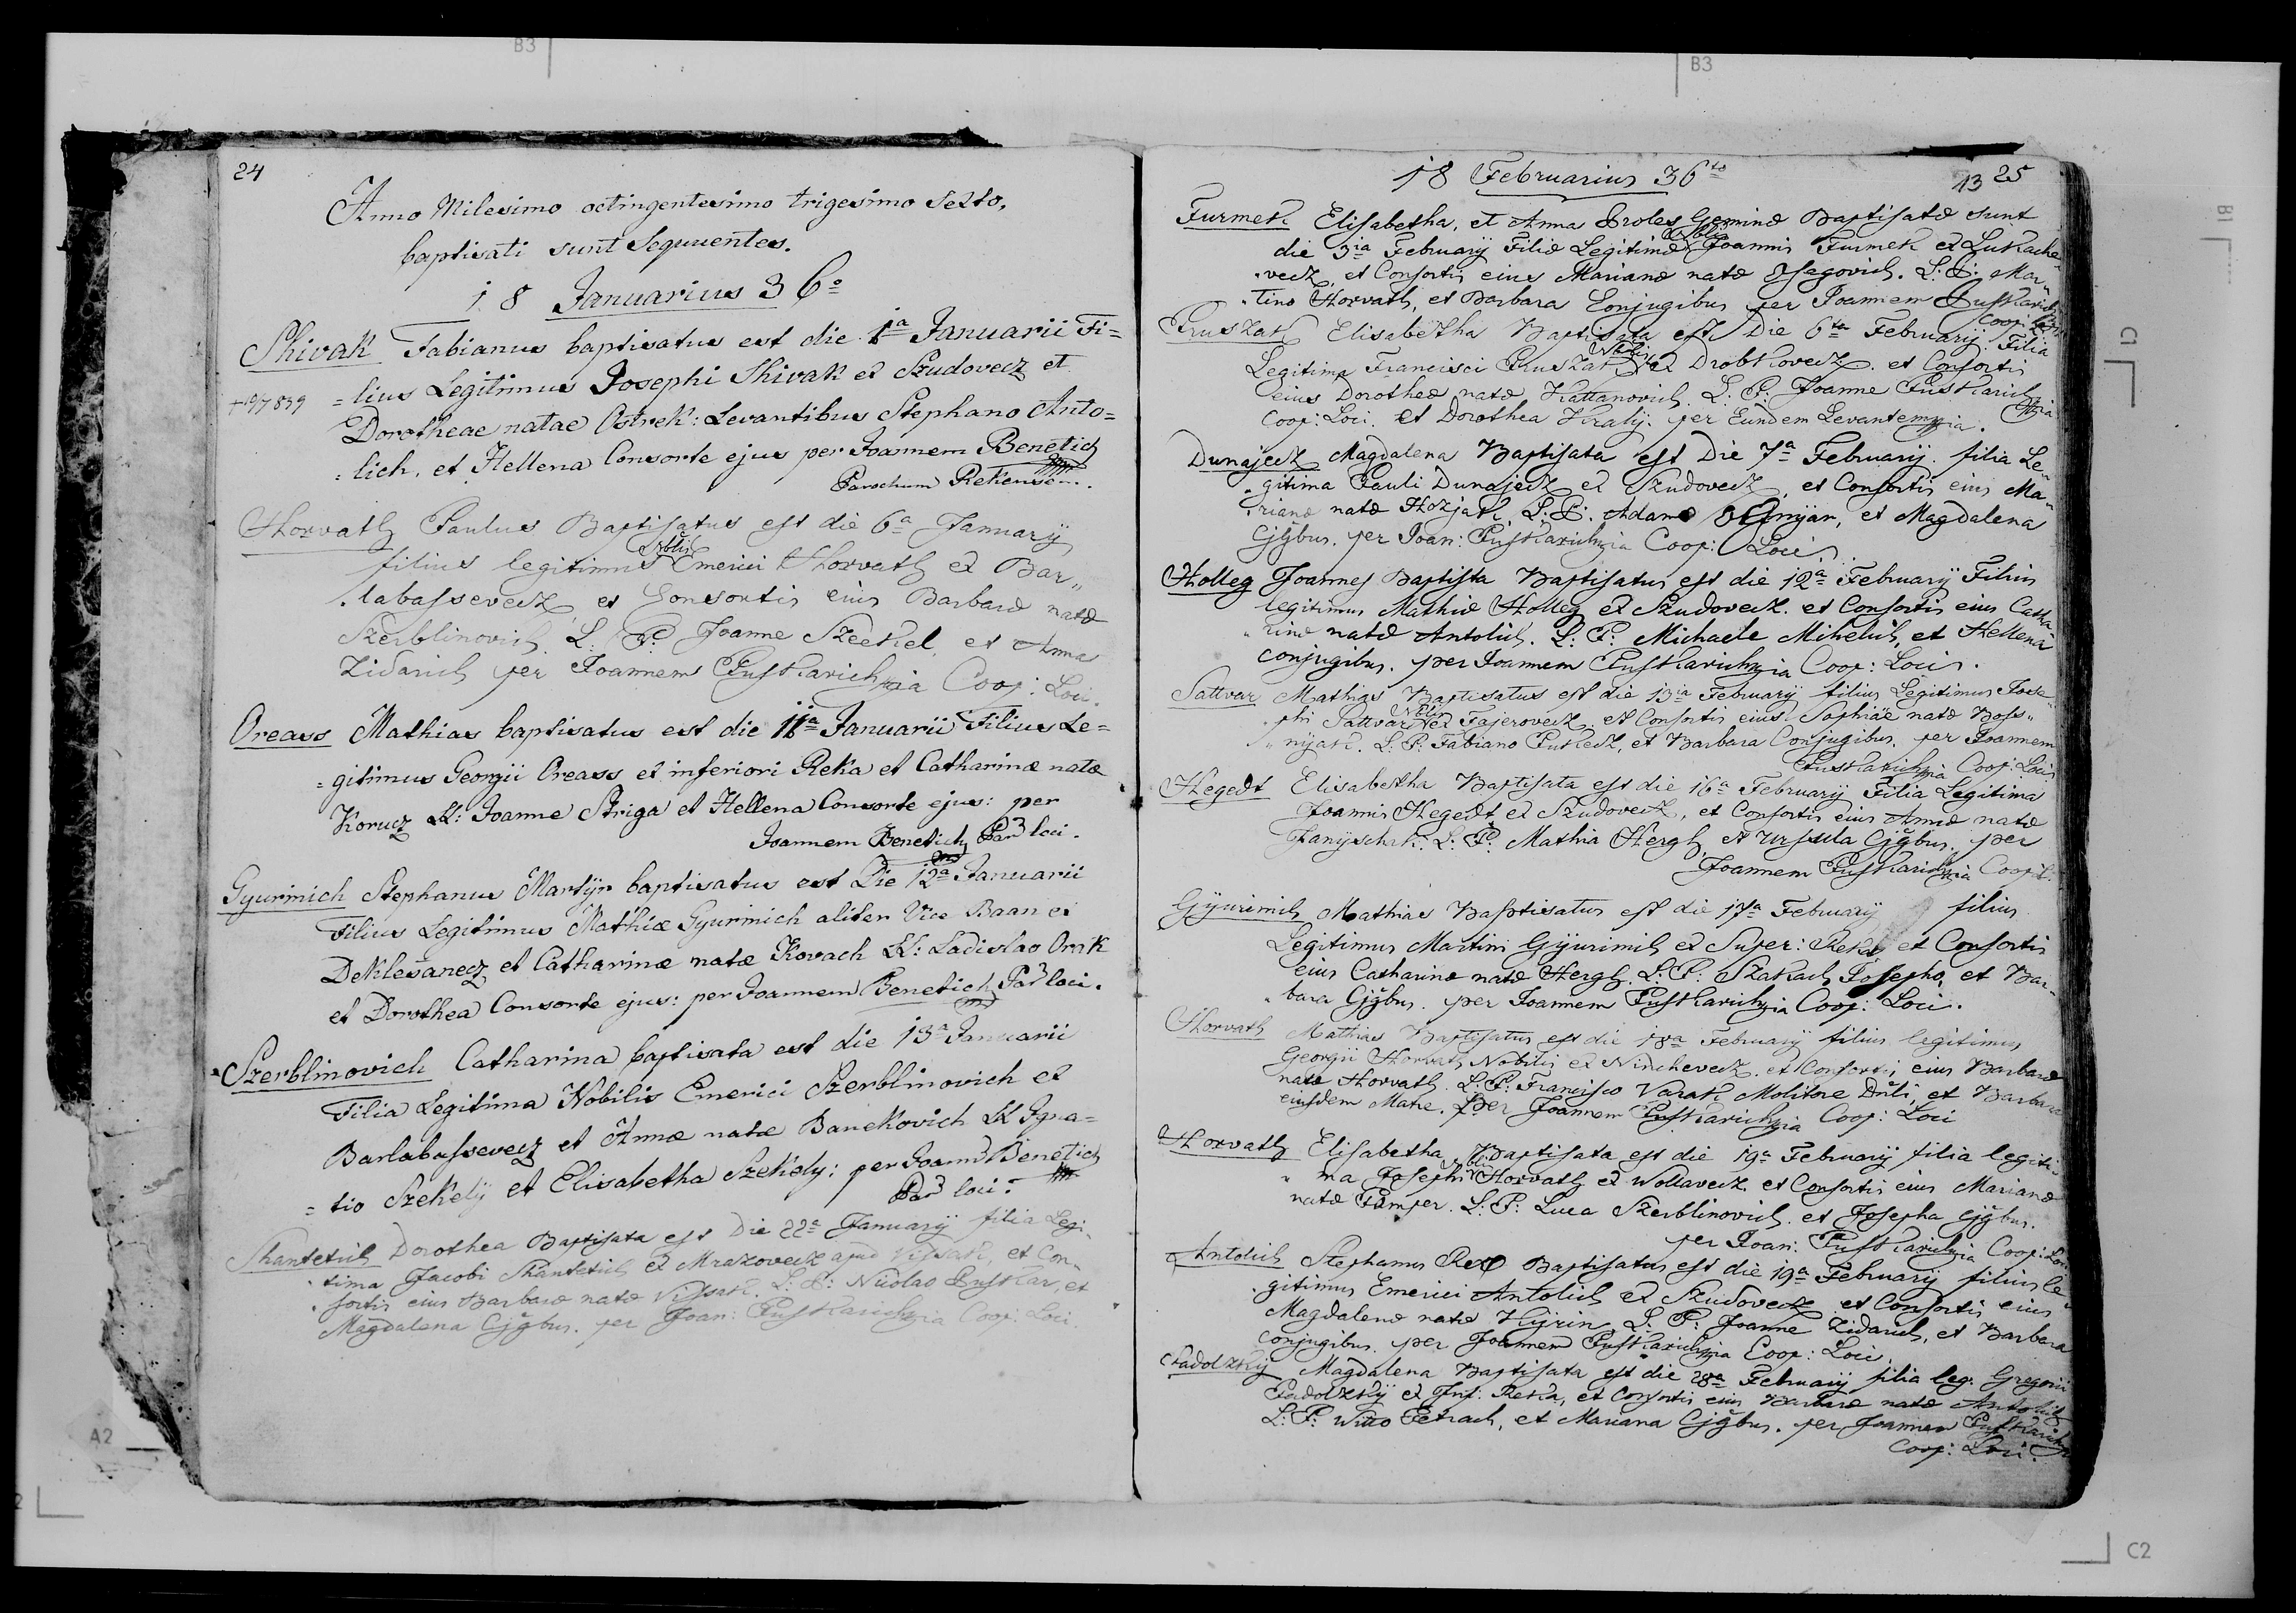 B3
B3
B1
C1
A2
C2
24
Anno Milesimo octingentesimo trigesimo Sexto,
baptisati sunt Sequentes.
18 Januarius 36o
Shivak Fabianus baptisatus est die 1a Januarii Fi=
+19/7 839 =lius Legitimus Josephi Shivak ex Szudovecz et
Dorotheae natae Ostrek: Levantibus Stephano Anto=
=lich, et Hellena Consorte ejus per Joannem Benetich
Parochum Rekensem.
Horvath Paulus Baptisatus est die 6a Januarÿ
filius legitimus Nblis Emerici Horvath ex Bar„
labassevecz et Consortis eius Barbaræ natæ
Szerblinovich. L. P. Joanne Szeekel, et Anna
Zidarich per Joannem Pustkarich Coop: Loci.
Oreass Mathias baptisatus est die 11a Januarii Filius Le=
=gitimus Georgii Oreass ex inferiori Reka et Catharinæ natæ
Korucz LL: Joanne Striga et Hellena Consorte ejus: per
Joannem Benetich Par loci.
Gyurinich Stephanus Martÿr baptisatus est Die 12a Januarii
Filius Legitimus Mathiæ Gyurinich aliter Vice Baan ex
Deklesanecz et Catharinæ natæ Kovach LL: Ladislao Orak
et Dorothea Consorte ejus: per Joannem Benetich Par loci.
Szerblinovich Catharina baptisata est die 13a Januarii
Filia Legitima Nobilis Emerici Szerblinovich ex
Barlabassevecz et Annæ natæ Banekovich LL Igna=
=tio Szekelÿ et Elisabetha Szekely: per Joann Benetich
Par loci:
Shantetich Dorothea Baptisata est Die 22a Januarÿ filia Legi„
tima Jacobi Shantetich ex Mrazovecz apud Vissath, et Con„
sortis eius Barbaræ natæ Vissath. L: P: Nicolao Pustkar, et
Magdalena Cjgbus. per Joan: Pustkarich Coop: Loci.
18 Februarius 36to
13 25
Furmek Elisabetha, et Anna Proles Geminæ Baptisatæ sunt
die 3ia Februarÿ Filiæ Legitimæ Nblis Joannis Furmek ex Lukache„
vecz et Consortis eius Marianæ natæ Osegovich. L: P: Mar„
tino Horvath, et Barbara Conjugibus per Joannem Pustkarich
Coop: Loci
Pruszath Elisabetha Baptisata est Die 6ta Februarÿ. Filia
Legitima Francisci Pruszath Nblis ex Drobkovecz. et Consortis
eius Dorotheæ natæ Kattanovich. L. P. Joanne Pustkarich
Coop: Loci. et Dorothea Kralÿ. per Eundem Levantem.
Dunajecz Magdalena Baptisata est Die 7a Februarÿ. filia Le„
gitima Pauli Dunajecz ex Szudovecz, et Consortis eius Ma„
rianæ natæ Hozjak. L. P. Adamo et Magdalena
Cjgbus. per Joan: Pustkarich Coop: Loci.
Holleg Joannes Baptista Baptisatus est die 12a Februarÿ Filius
legitimus Mathiæ Holleg ex Szudovecz. et Consortis eius Catha„
rinæ natæ Antolich. L: P. Michaele Mihelich, et Hellena
conjugibus. per Joannem Pustkarich Coop: Loci.
Sattvar Mathias Baptisatus est die 13ia Februarÿ filius Legitimus Jose„
phi Sattvar Nblis ex Fajerovecz. et Consortis eius Sophiæ natæ Boss„
nÿak. L. P. Fabiano Puklecz, et Barbara Conjugibus. per Joannem
Pustkarich Coop: Loci
Hegedt Elisabetha Baptisata est die 16a Februarÿ Filia Legitima
Joannis Hegedt ex Szudovecz, et Consortis eius Annæ natæ
L. P. Mathia Hergh, et Ursula Cjgbus. per
Joannem Pustkarich Coop: L.
Gÿurinich Mathias Baptisatus est die 17a Februarÿ filius
Legitimus Martini Gÿurinich ex Super: Reka, et Consortis
eius Catharinæ natæ Hergh. L: P: Szakach Josepho, et Bar„
bara Cjgbus. per Joannem Pustkarich Coop: Loci.
Horvath Mathias Baptisatus est die 18va Februarÿ filius legitimus
Georgii Horvath Nobilis ex Ninchevecz. et Consortis eius Barbaræ
natæ Horvath. L: P: Francisco Varak Molitore Dnli, et Barbara
eiusdem Matre. per Joannem Pustkarich Coop: Loci
Horvath Elisabetha Baptisata est die 19a Februarÿ filia legiti„
ma Josephi Nblis Horvath ex Wollavecz et Consortis eius Marianæ
natæ Pamper. L: P: Luca Szerblinovich. et Josepha Cjgbus.
per Joan: Pustkarich Coop: Loci
Antolich Stephanus Rex Baptisatus est die 19a Februarÿ filius le„
gitimus Emerici Antolich ex Szudovecz et Consortis eius
Magdalenæ natæ Hÿrin. L: P: Joanne Zidarich, et Barbara
conjugibus. per Joannem Pustkarich Coop: Loci.
Padolzkÿ Magdalena Baptisata est die 28va Februarÿ filia leg: Gregorii
Padolzkÿ ex Inf: Reka, et Consortis eius Barbaræ natæ Antolich
L: P: Witto Petrach, et Mariana Cjgbus. per Joannem Pustkarich
Coop: Loci.